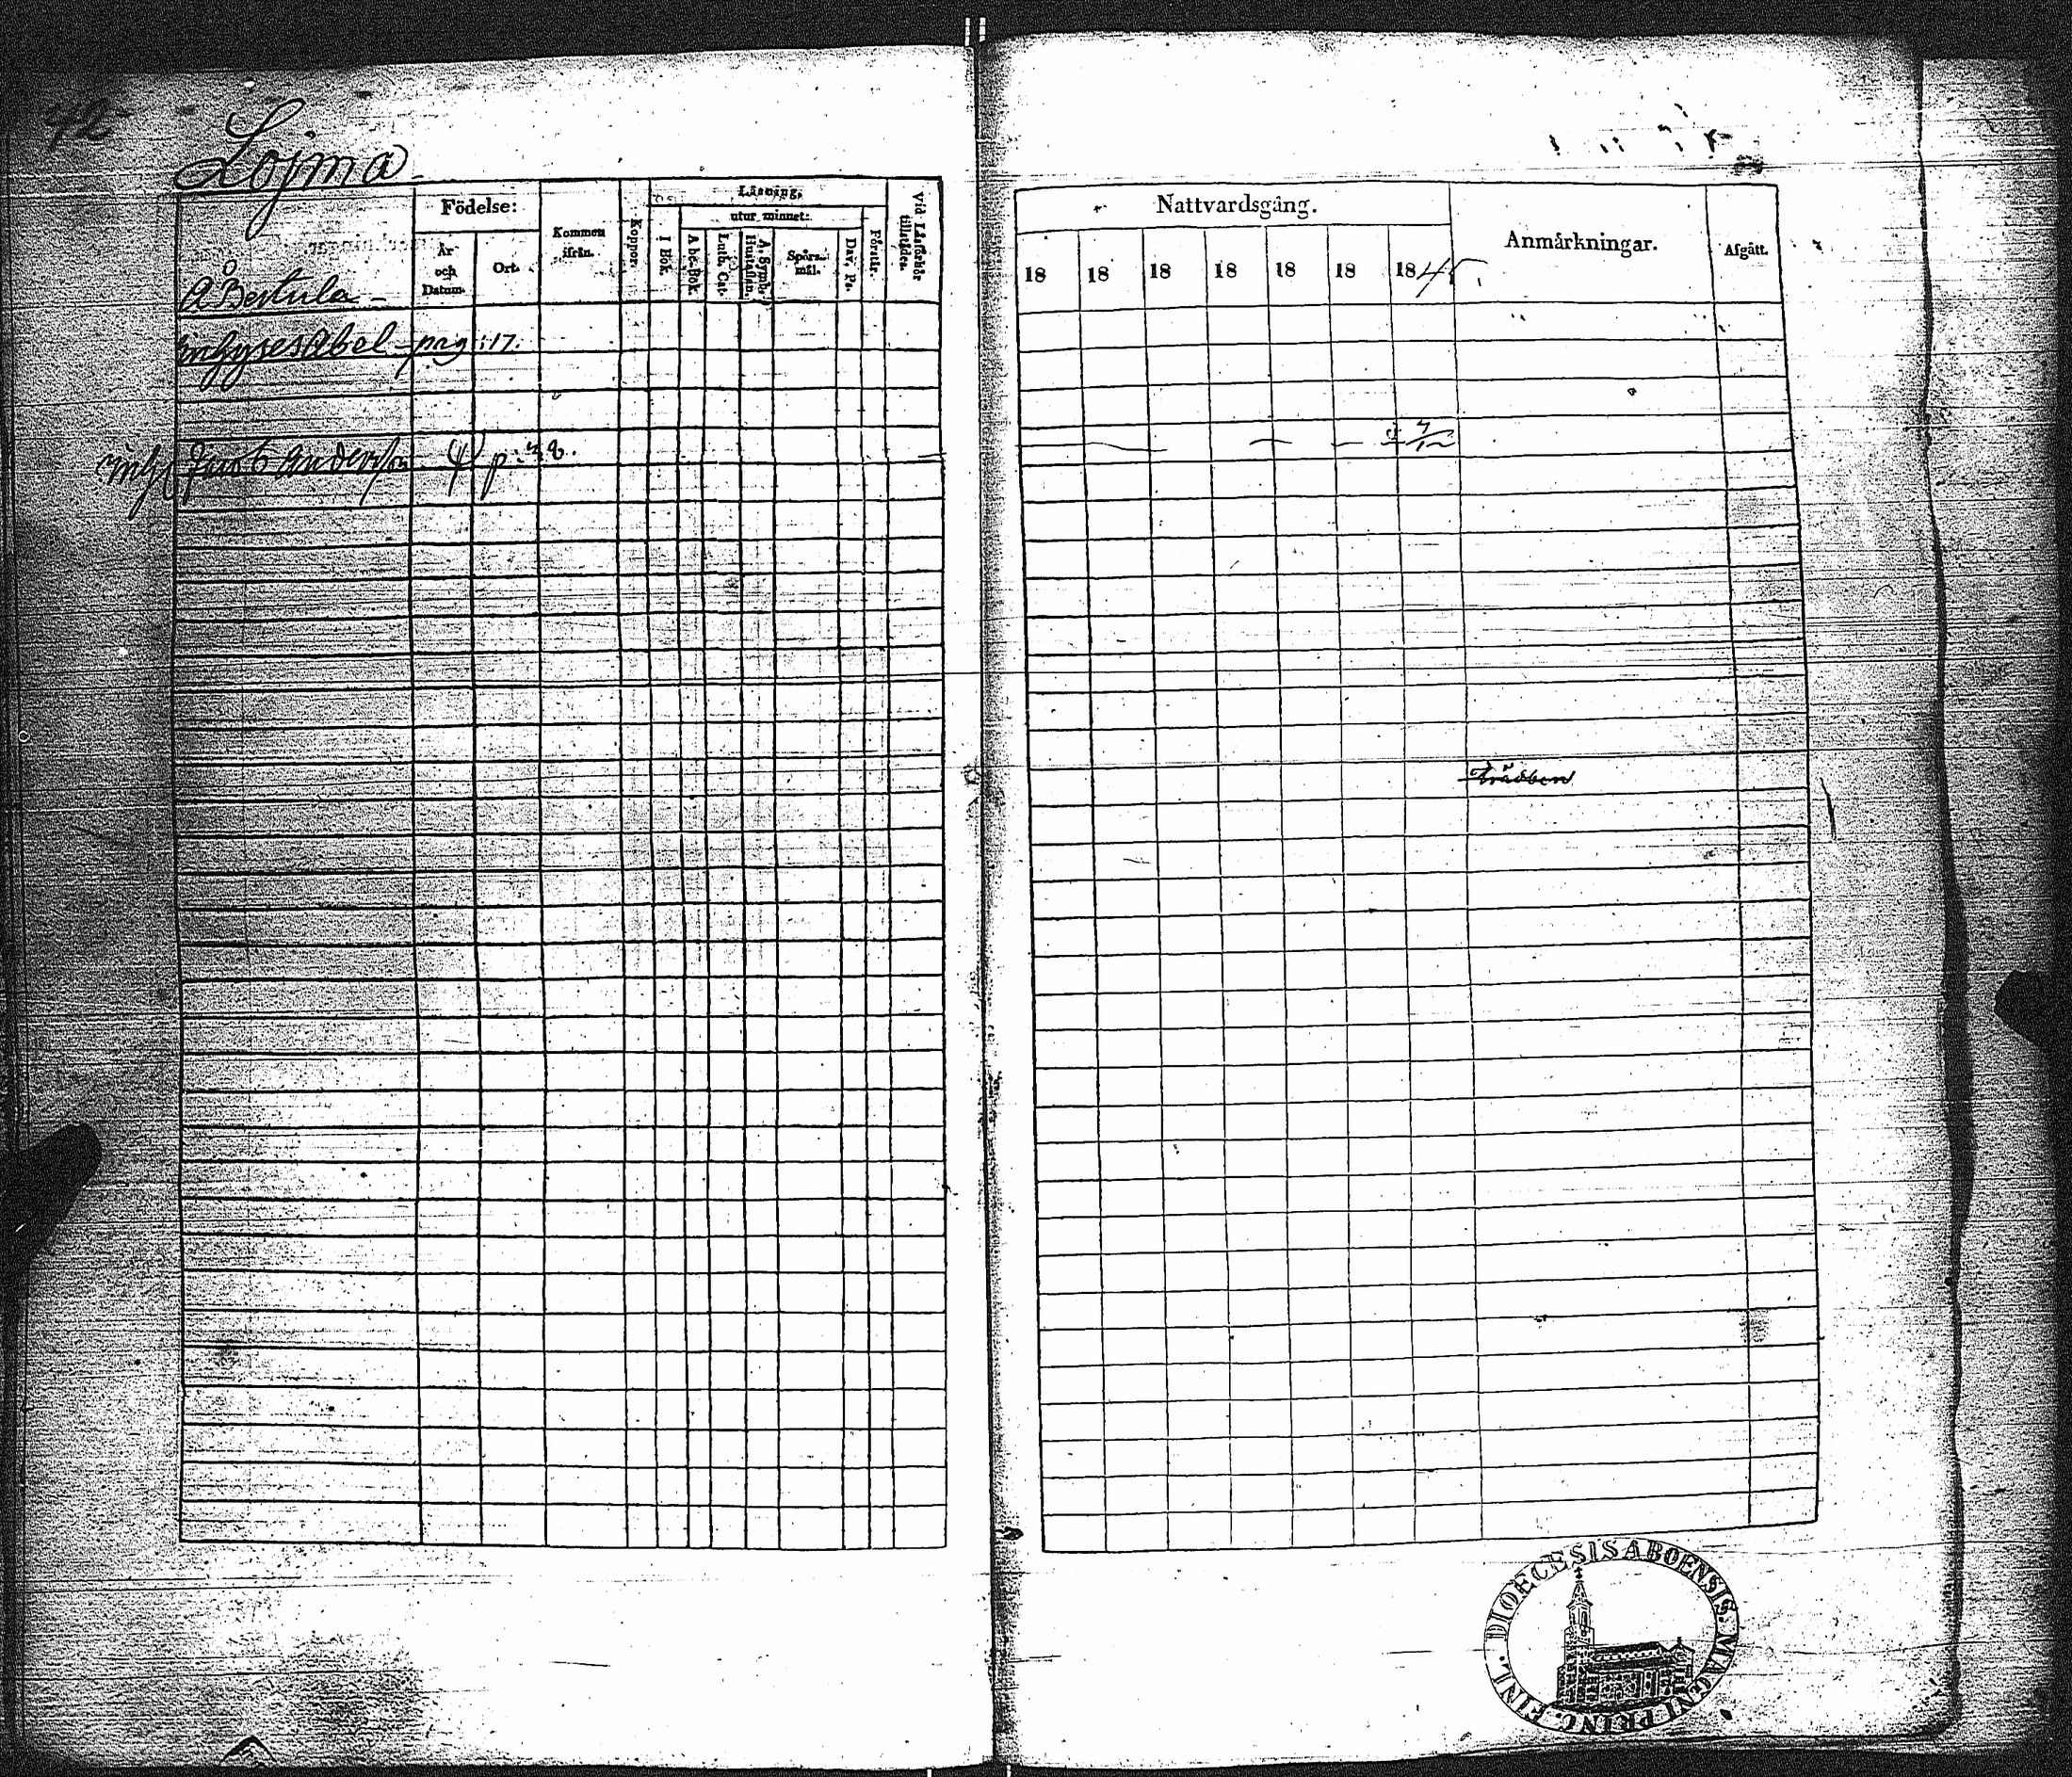 42
Lojma
Födelse:
År och Datum.
Ort.
Kommen ifrån.
Koppor.
Läsning,
I Bok.
utur minnet:
Abc-Bok.
Luth. Cat.
A. Symb. Hustaflan.
Spörsmål.
Dav. Ps.
Förstår.
Vid Läsförhör tillstädes.
Å Bertula
Inhyses Abel pag: 17.
Inh. Anderss. p: 38.
Nattvardsgång.
Anmärkningar.
Afgått.
18 18 18 18 18 18 1845
4/12
DIOECESIS ABOENSIS. MAGNI PRINC. FINL.